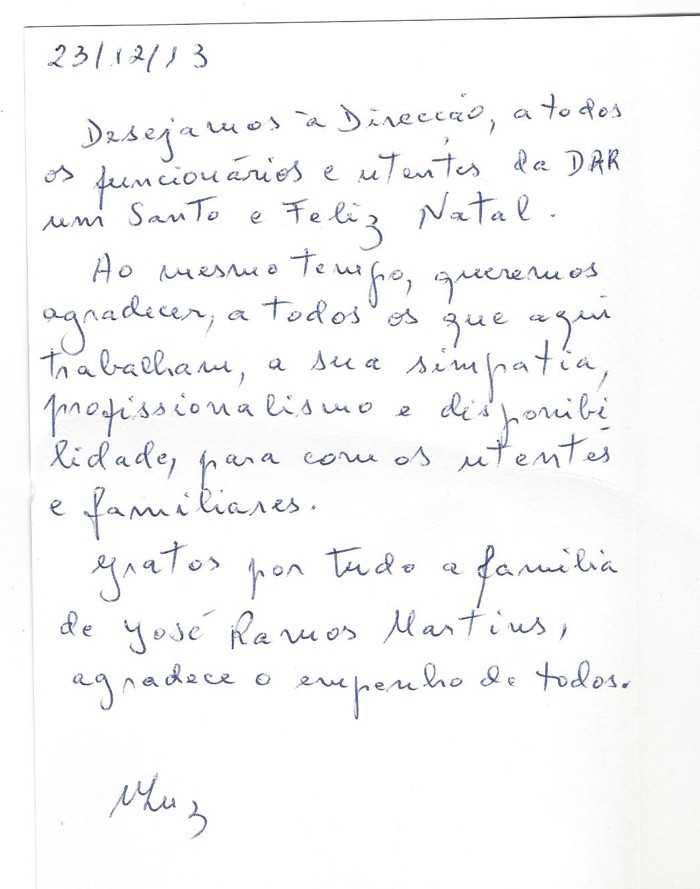 23/12/13
Desejamos à Direcção, a todos
os funcionários e utentes da DAR
um Santo e Feliz Natal.
Ao mesmo tempo, queremos
agradecer, a todos os que aqui
trabalham, a sua simpatia,
profissionalismo e disponibi
lidade, para com os utentes
e familiares.
Gratos por tudo a família
de José Ramos Martins,
agradece o empenho de todos.